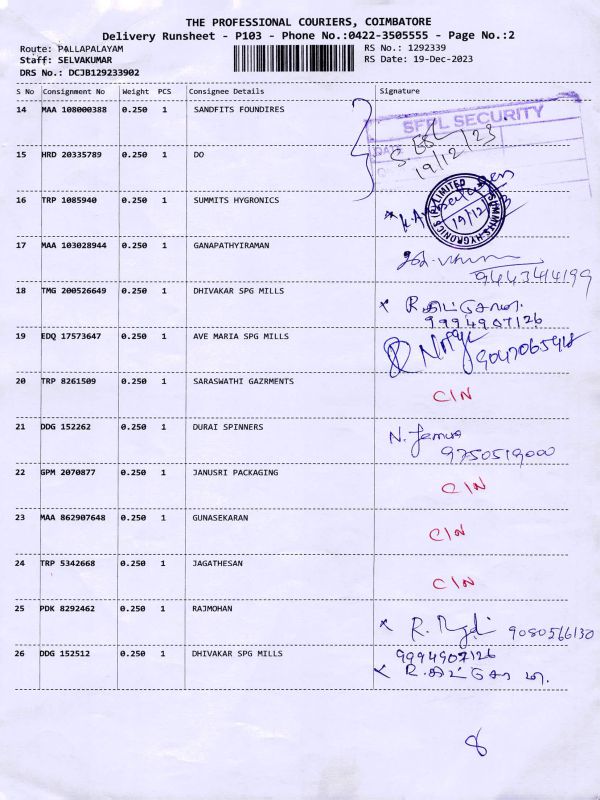 THE PROFESSIONAL COURIERS, COIMBATORE
Delivery Runsheet - P103 - Phone No.:0422-3505555 - Page No.:2
Route: PALLAPALAYAM RS No.: 1292339
Staff: SELVAKUMAR RS Date: 19-Dec-2023
DRS No.: DCJB129233902
S No Consignment No Weight PCS Consignee Details Signature
14 MAA 108000388 0.250 1 SANDFITS FOUNDIRES
SFPL SECURITY
DATE
19/12/23
15 HRD 20335789 0.250 1 DO
16 TRP 1085940 0.250 1 SUMMITS HYGRONICS
SUMMITS HYGRONICS (P) LIMITED
19/12
17 MAA 103028944 0.250 1 GANAPATHYIRAMAN
9443414199
18 TMG 200526649 0.250 1 DHIVAKAR SPG MILLS
9994907126
19 EDQ 17573647 0.250 1 AVE MARIA SPG MILLS
20 TRP 8261509 0.250 1 SARASWATHI GAZRMENTS C/N
21 DDG 152262 0.250 1 DURAI SPINNERS
9750519000
22 GPM 2070877 0.250 1 JANUSRI PACKAGING C/N
23 MAA 862907648 0.250 1 GUNASEKARAN C/N
24 TRP 5342668 0.250 1 JAGATHESAN C/N
25 PDK 8292462 0.250 1 RAJMOHAN 9080566130
26 DDG 152512 0.250 1 DHIVAKAR SPG MILLS 9994907126
8